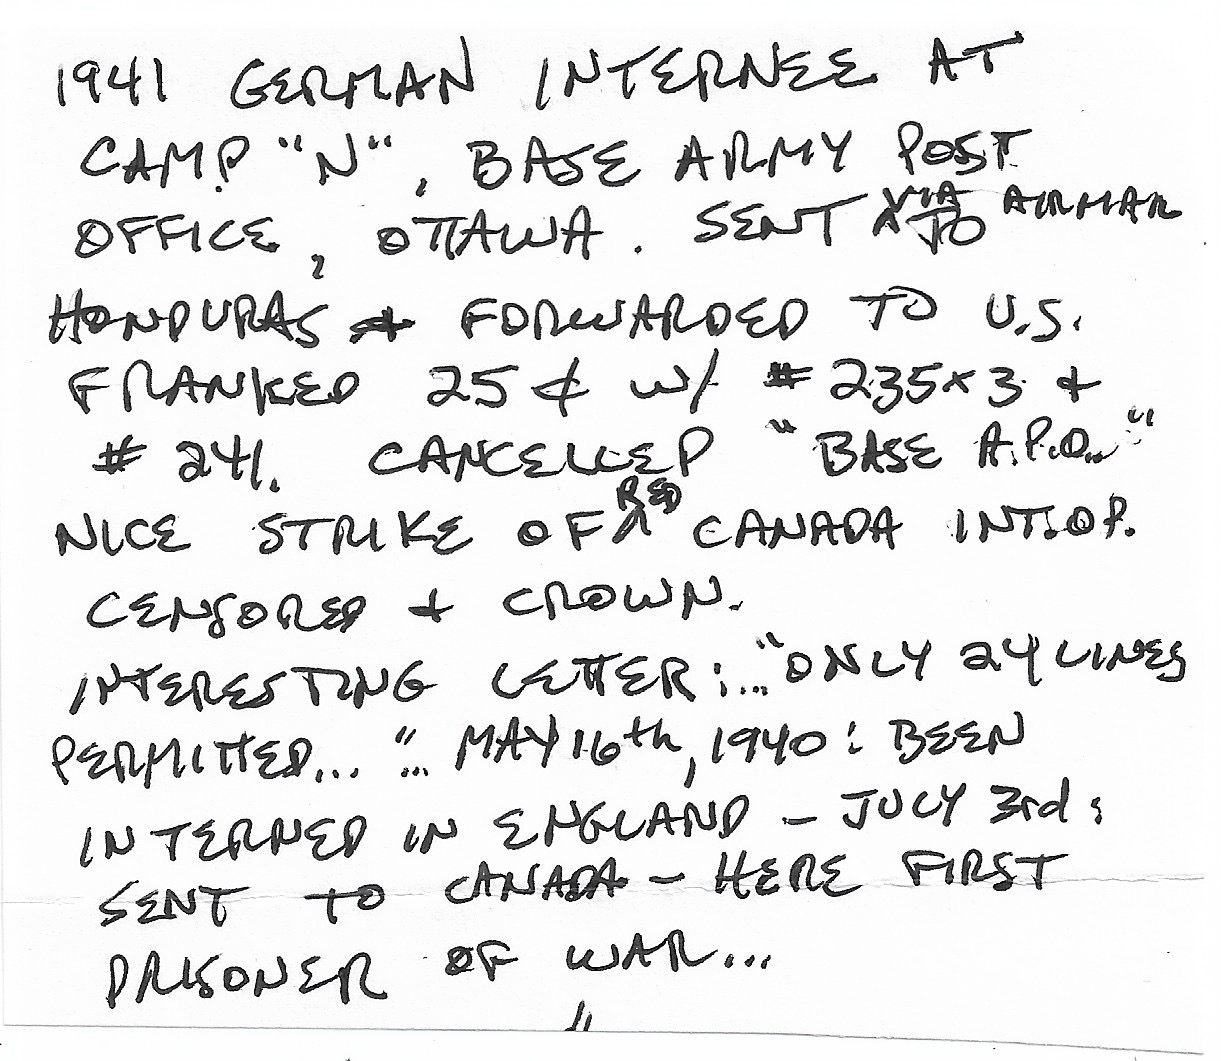 1941 GERMAN INTERNEE AT
CAMP "N", BASE ARMY POST
OFFICE, OTTAWA. SENT ^VIA AIRMAIL TO
HONDURAS & FORWARDED TO U.S.
FRANKED 25¢ W/ #235x3 &
#241. CANCELLED "BASE A.P.O.."
NICE STRIKE OF ^RED CANADA INT.OP.
CENSORED & CROWN.
INTERESTING LETTER:..."ONLY 24 LINES
PERMITTED..." "... MAY 16th, 1940: BEEN
INTERNED IN ENGLAND - JULY 3rd:
SENT TO CANADA - HERE FIRST
PRISONER OF WAR...
"